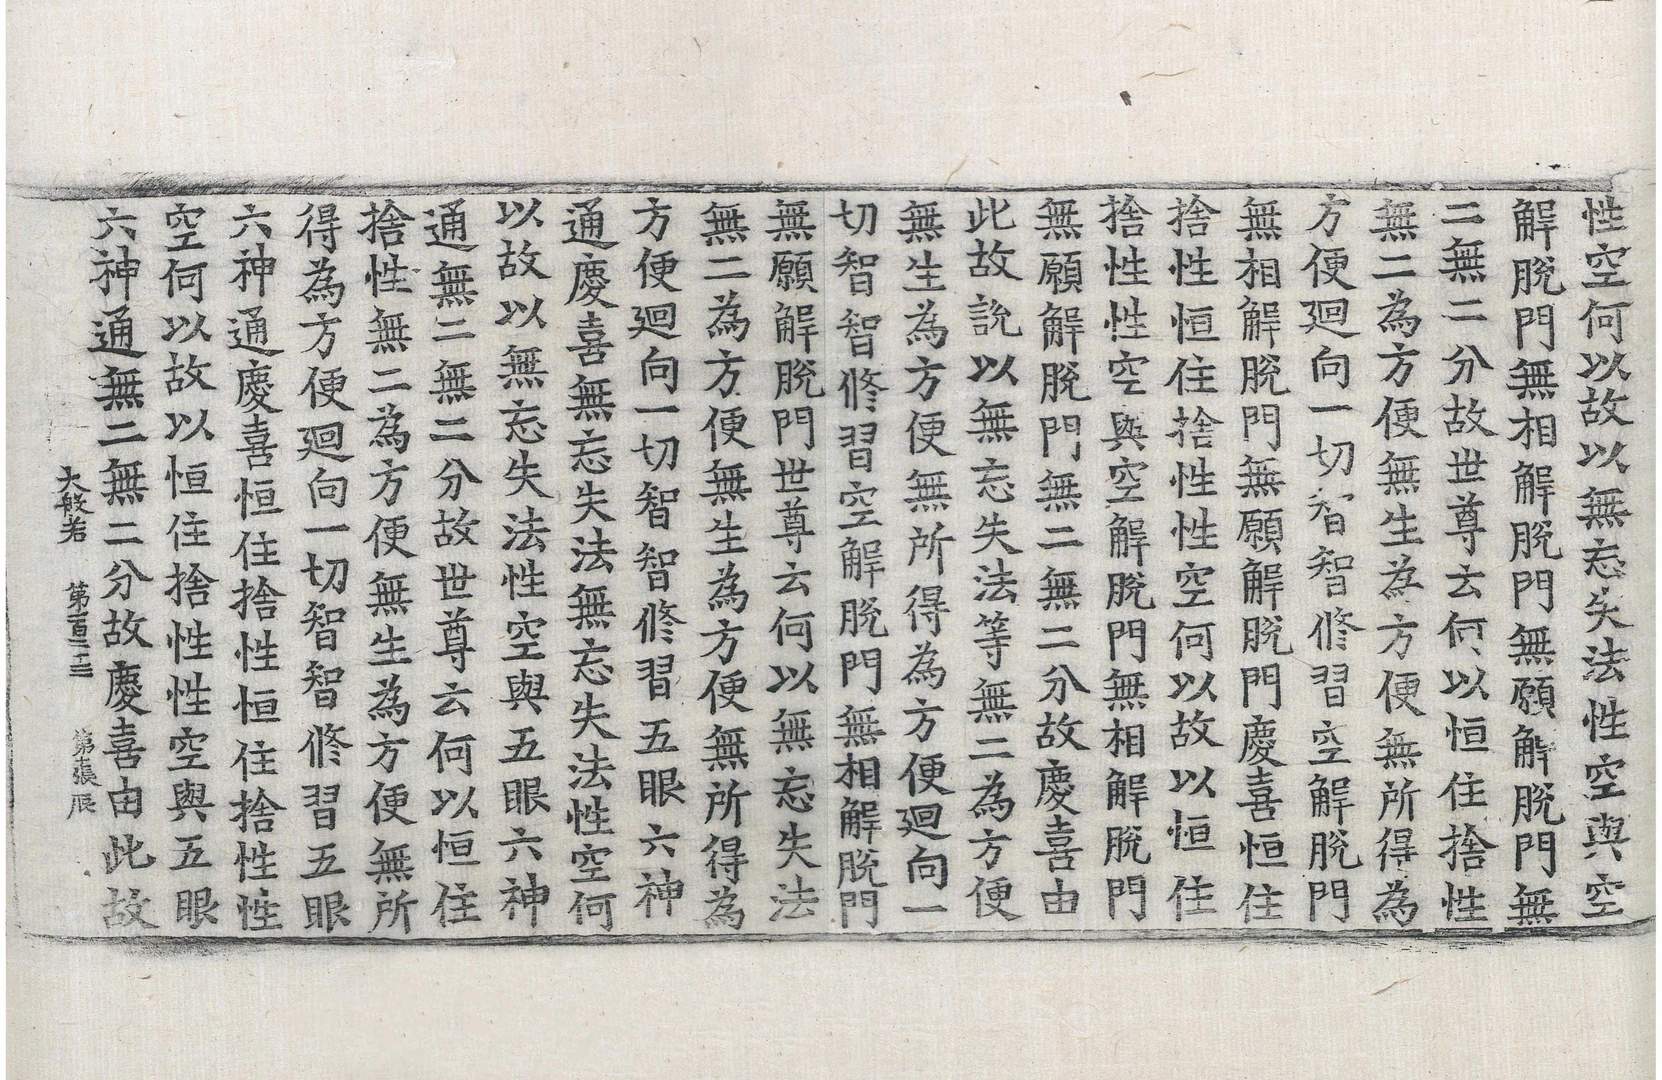 性空何以故以無忘失法性空與空
解脫門無相解脫門無願解脫門無
二無二分故世尊云何以恒住捨性
無二為方便無生為方便無所得為
方便廻向一切智智修習空解脫門
無相解脫門無願解脫門慶喜恒住
捨性恒住捨性性空何以故以恒住
捨性性空與空解脫門無相解脫門
無願解脫門無二無二分故慶喜由
此故說以無忘失法等無二為方便
無生為方便無所得為方便廻向一
切智智修習空解脫門無相解脫門
無願解脫門世尊云何以無忘失法
無二為方便無生為方便無所得為
方便廻向一切智智修習五眼六神
通慶喜無忘失法無忘失法性空何
以故以無忘失法性空與五眼六神
通無二無二分故世尊云何以恒住
捨性無二為方便無生為方便無所
得為方便廻向一切智智修習五眼
六神通慶喜恒住捨性恒住捨性性
空何以故以恒住捨性性空與五眼
六神通無二無二分故慶喜由此故
大般若 第一百二十三 第 張 辰